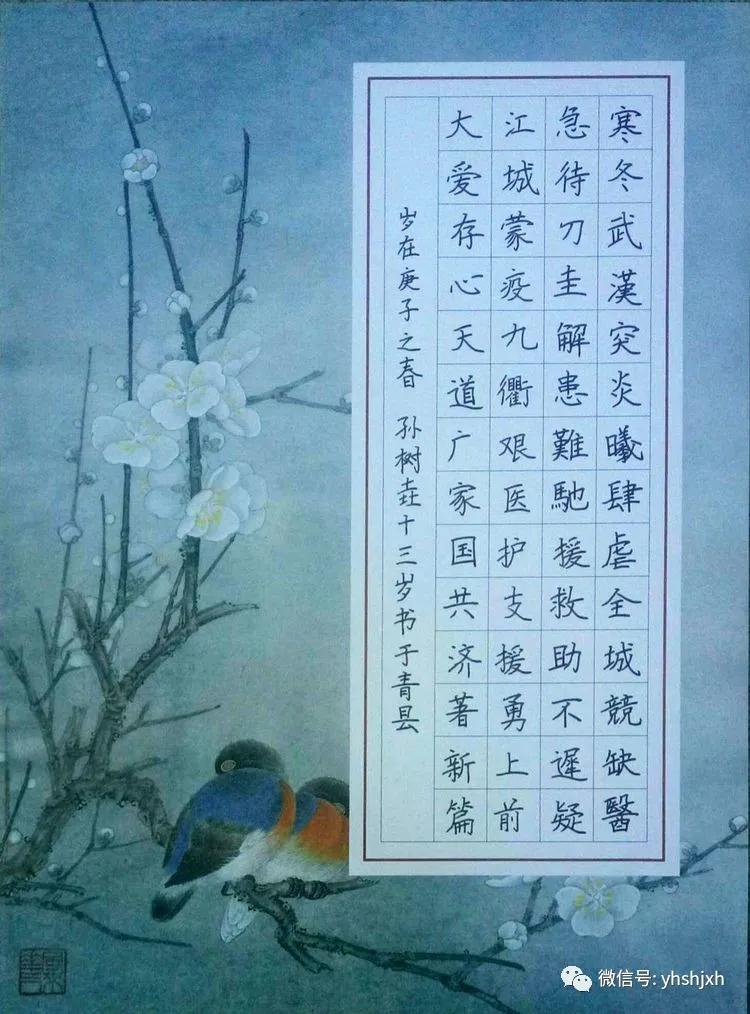 寒冬武漢突炎曦肆虐全城競缺醫
急待刀圭解患難馳援救助不遲疑
江城蒙疫九衢艰医护支援勇上前
大爱存心天道广家国共济著新篇
岁在庚子之春 孙树垚十三岁书于青县
微信号: yhshjxh